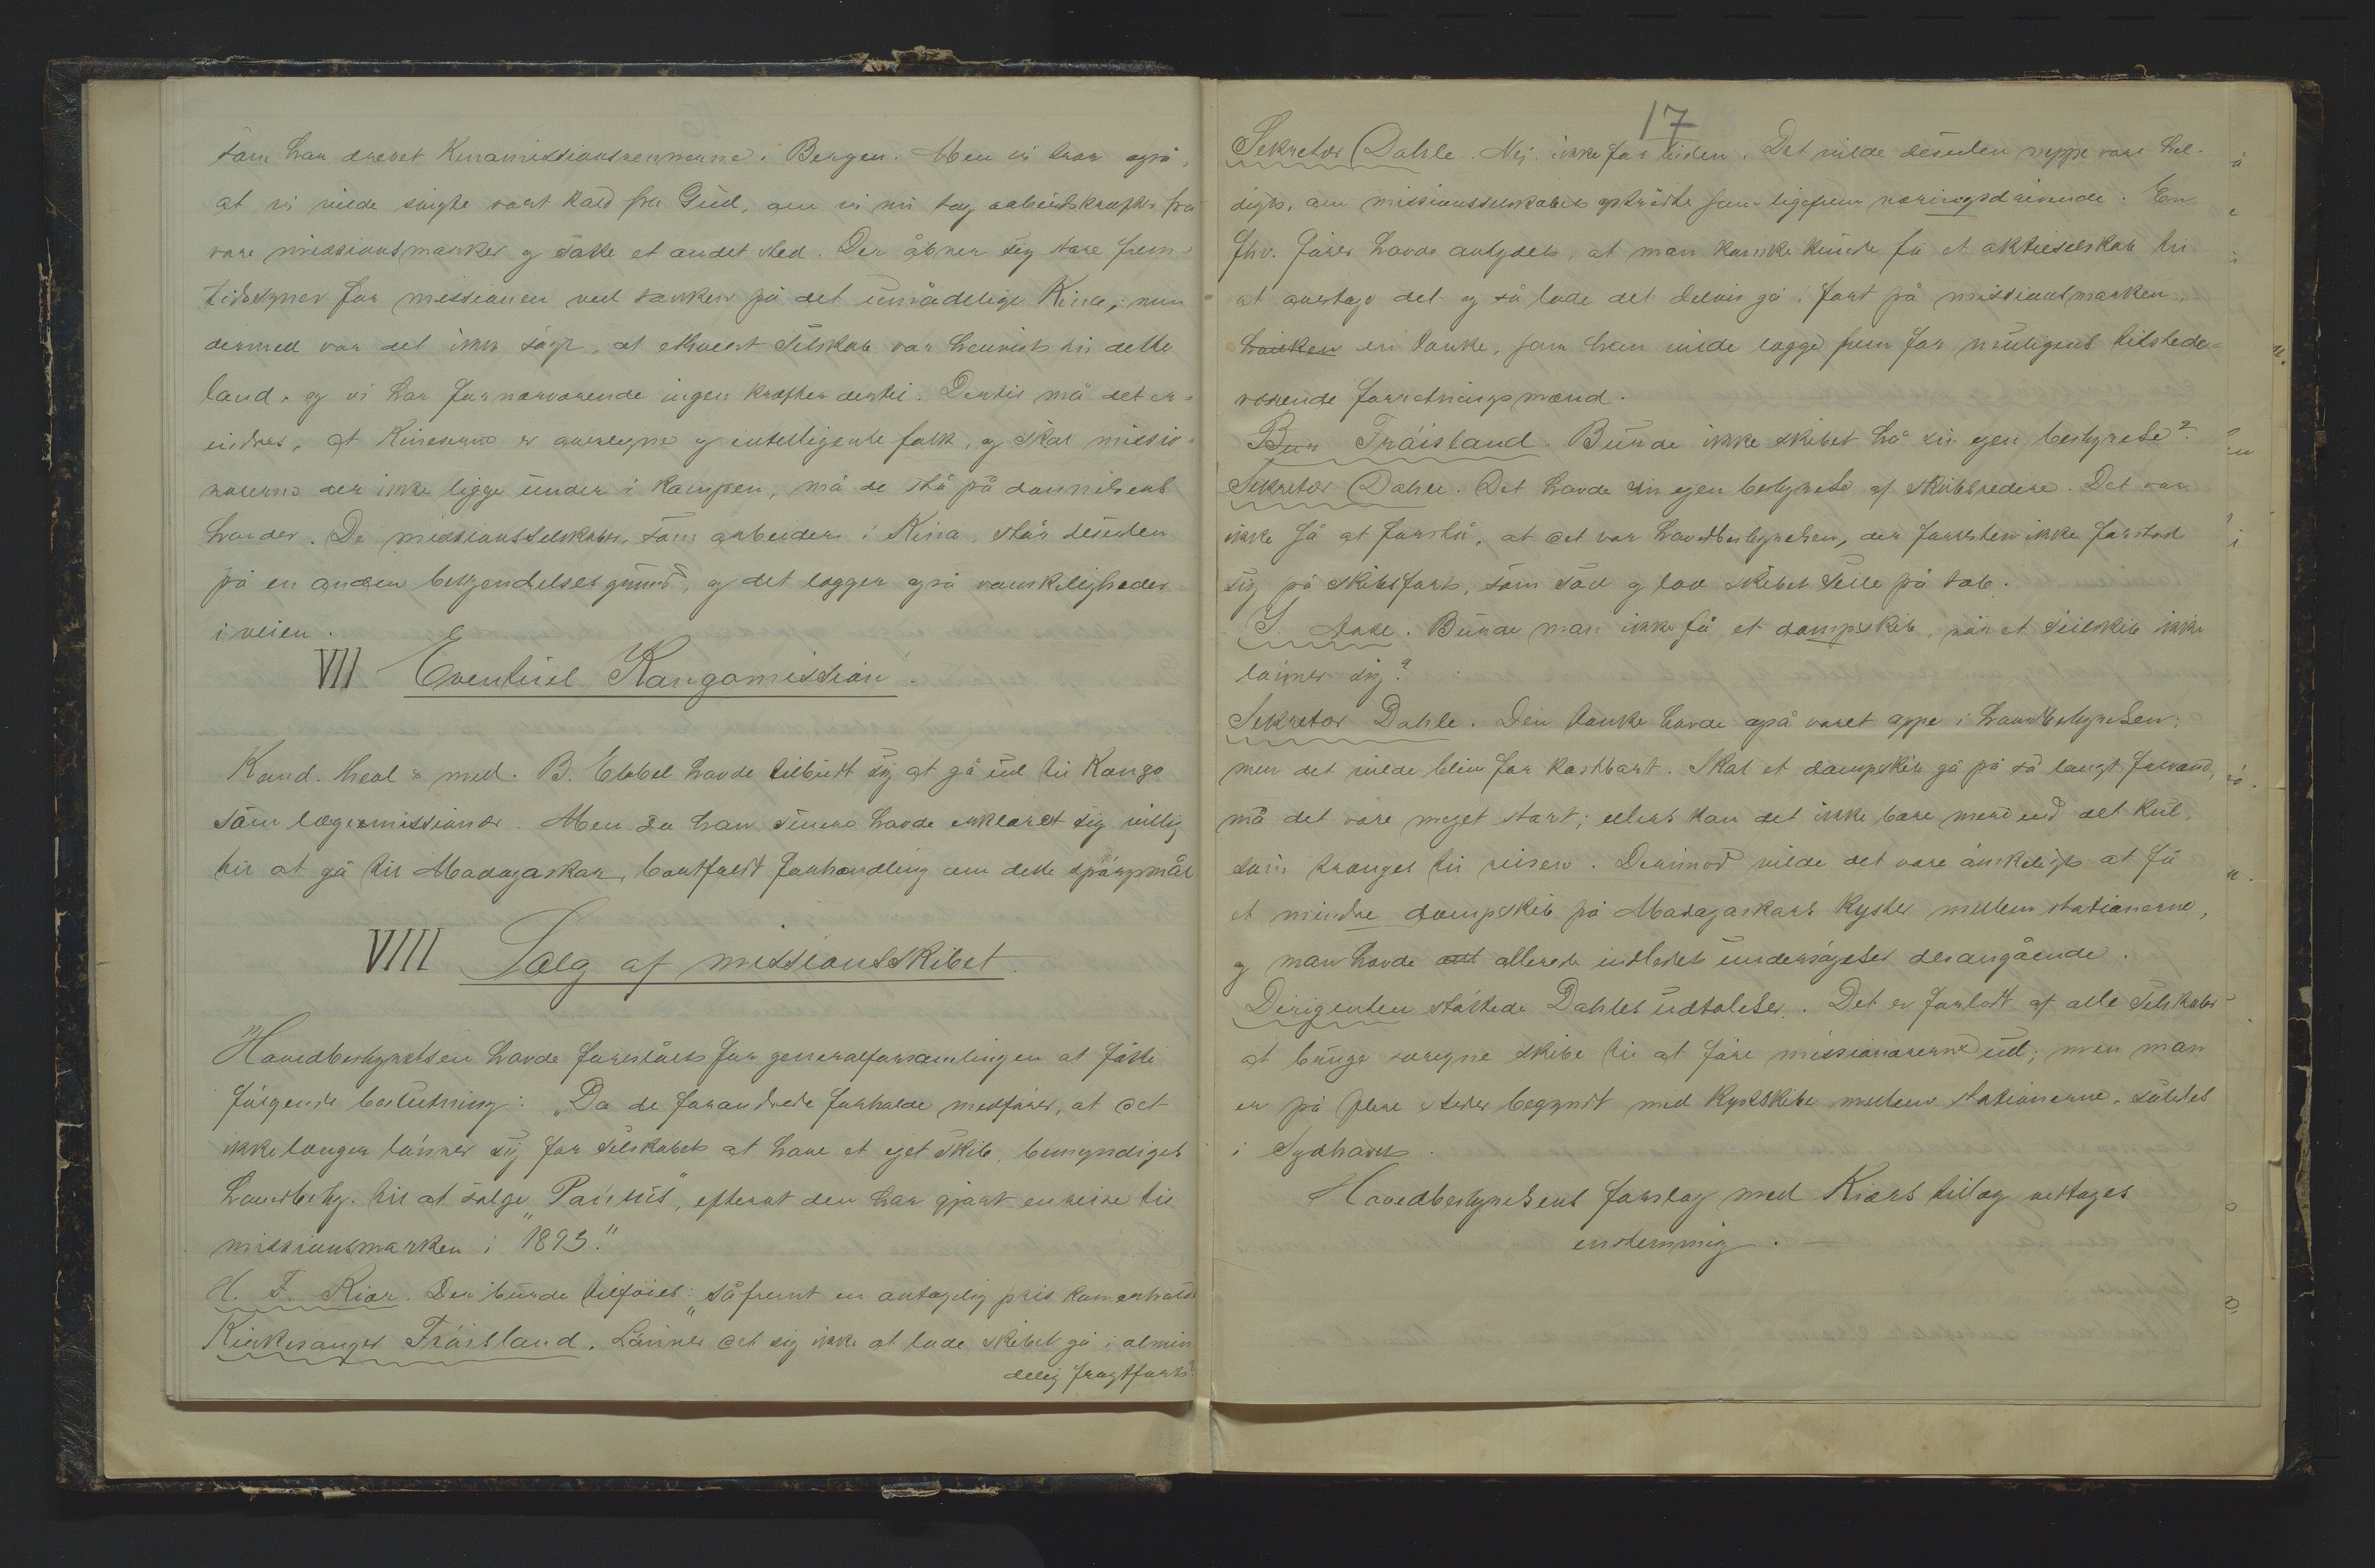 som har drevet Kinamissionsvennerne i Bergen. Men vi tror også,
at vi vilde svigte vort kald fra Gud, om vi nu tog arbeidskræfter fra
vore missionsmarker og satte et andet sted. Der åbner sig store frem-
tidssyner for missionen ved tanken på det umådelige Kina, men
dermed var det ikke sagt, at ethvert Selskab var henvist til dette
land, og vi har for nærværende ingen kræfter dertil. Dertil må det er-
indres, at Kineserne er overlegne og intelligente folk, og skal missio-
nærerne der ikke ligge under i kampen, må de stå på dannelsens
høider. De missionsselskaber, som arbeider i Kina, står desuden
på en anden bekjendelsesgrund, og det lægger også vanskeligheder
i veien.
VII Eventuel Kongomission.
Kand. theol & med. B. Ebbel havde tilbudt sig at gå ud til Kongo
som lægemissionær. Men da han senere havde erklæret sig villig
til at gå til Madagaskar, bortfaldt forhandling om dette spörgsmål
VIII Salg af missionsskibet.
Hovedbestyrelsen havde foreslået for generalforsamlingen at fatte
fölgende beslutning: "Da de forandrede forholde medförer, at det
ikke længer lönner sig for Selskabet at have et eget skib, bemyndiges
Hovedbesty. til at sælge "Paulus", efterat den har gjort en reise til
missionsmarken i 1893."
H. F. Kiær. Der burde tilföies: "såfremt en antagelig pris kan erholdes
Kirkesanger Tråisland. Lönner det sig ikke at lade skibet gå i almin
delig fragtfart?
17
Sekretær Dahle. Nej, ikke for tiden. Det vilde desuden neppe være hel-
digt, om missionsselskabet optrådte som ligefrem næringsdrivende. En
fhv. förer havde antydet, at man kanske kunde få et aktieselskab til
at overtage det og så lade det delvis gå i fart på missionsmarken,
hvilken en tanke, som han vilde lægge frem for muligens tilstede-
værende forretningsmænd.
Bur Tråisland. Burde ikke skibet hå sin egen bestyrelse?
Sekretær Dahle. Det havde sin egen bestyrelse af skibsredere. Det var
ikke så at forstå, at det var hovedbestyrelsen, der forresten ikke forstod
sig på skibsfart, som sad og lod skibet seile på tab.
S. Aase. Burde man ikke få et dampskib, når et seilskib ikke
lönner sig?
Sekretær Dahle. Den tanke havde også været oppe i hovedbestyrelsen;
men det vilde bliv for kostbart. Skal et dampskib gå på så langt farvand,
må det være meget stort; ellers kan det ikke bære mere end det kul,
som trænges til reisen. Derimod vilde det være önskeligt at få
et mindre dampskib på Madagaskars kyster mellem stationerne,
og man havde allerede indledet undersögelser desangående.
Dirigenten stöttede Dahles udtalelser. Det er forladt af alle Selskaber
at bruge søregne skibe til at före missionærerne ud; men man
er på flere steder begyndt med kystskibe mellem stationerne, således
i Sydhavet.
Hovedbestyrelsens forslag med Kiærs tillæg vedtages
enstemmig.